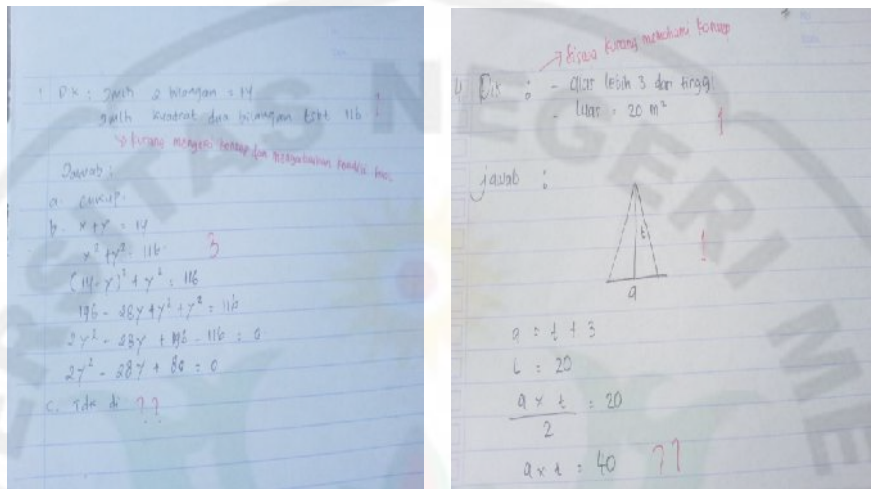 1. Dk : Jmlh 2 bilangan = 14
Jmlh kuadrat dua bilangan tsbt 116
1
kurang mengerti konsep dan
Jawab :
a. cukup.
b. x + y = 14
x² + y² = 116
3
(14 - y)² + y² = 116
196 - 28y + y² + y² = 116
2y² - 28y + 196 - 116 = 0
2y² - 28y + 80 = 0
c. tdk di ??
→ siswa kurang memahami konsep
Dik : - alas lebih 3 dari tinggi
- luas = 20 m²
1
jawab :
t
1
a
a = t + 3
L = 20
a x t = 20
2
a x t = 40 ??
ERSITAS NEGERI ME